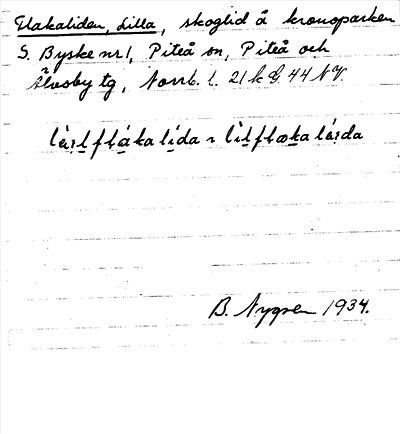 Flakaliden, Lilla, skoglid å kronoparken
S. Byske nr 1, Piteå sn, Piteå och
Älvsby tg, Norrb. l. 21 k G. 44 NV.
B. Nygren 1934.